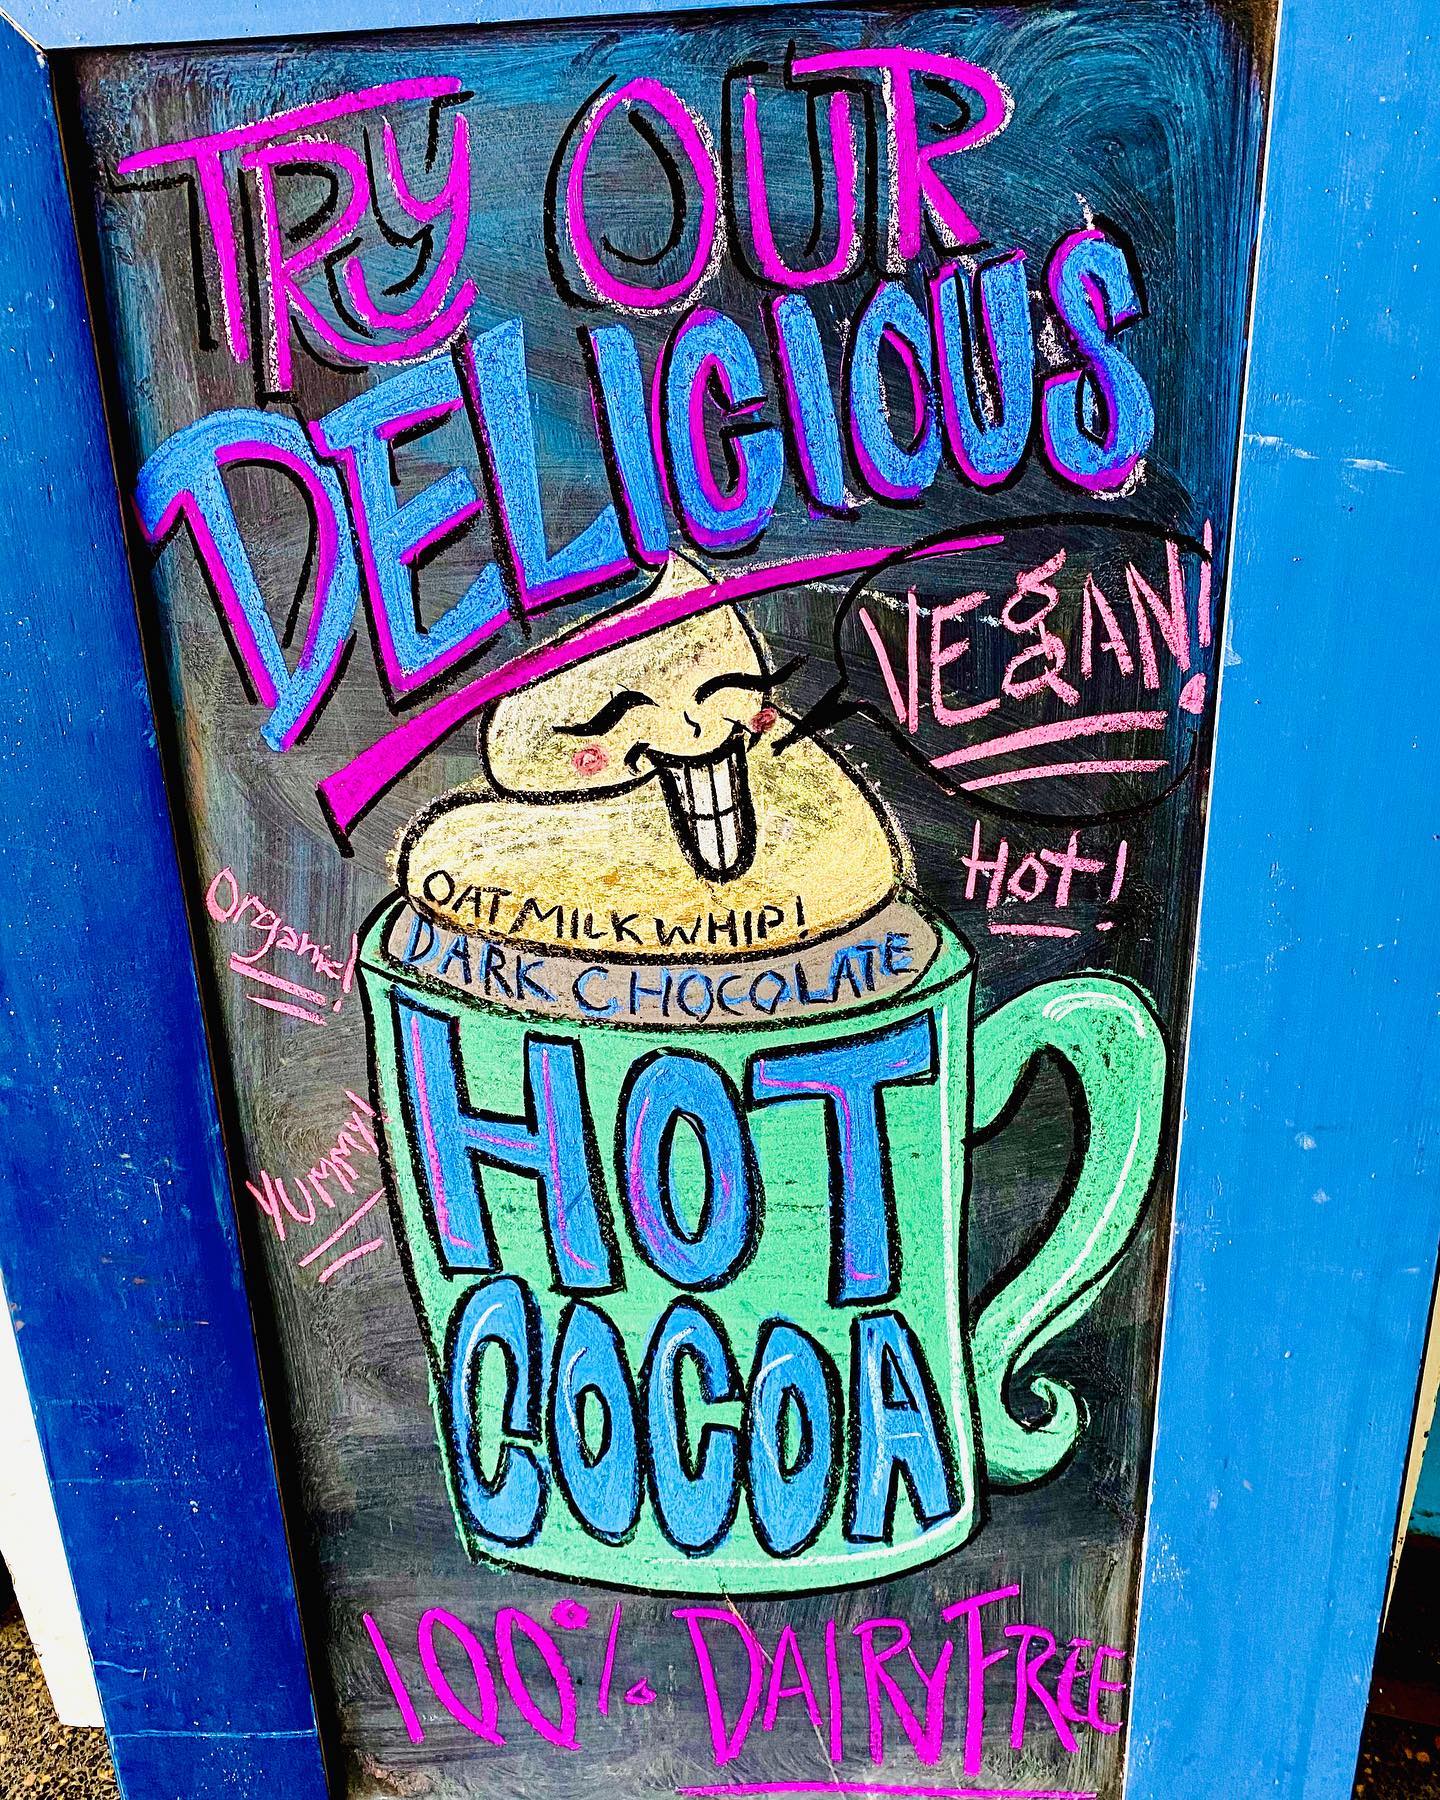 TRY OUR
DELICIOUS
VEgAN!
HOt!
Organic!
OAT MILK WHIP!
DARK CHOCOLATE
HOT
YUMMY!
COCOA
100% DAIRY FREE